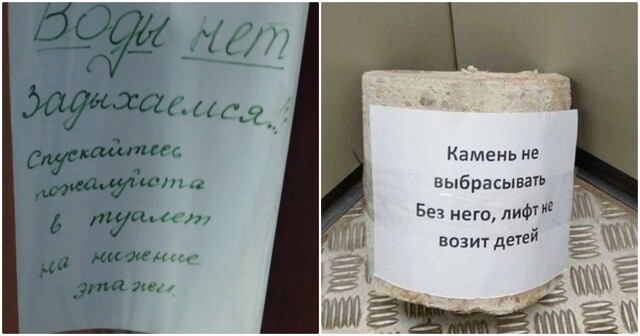 Воды нет
Задыхаемся!!
Спускайтесь
пожалуйста
в туалет
на нижение
этажи.
Камень не
выбрасывать
Без него, лифт не
возит детей